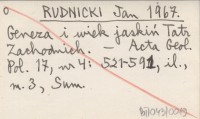 RUDNICKI Jan 1967.
Geneza i wiek jaskiń Tatr
Zachodnich. — Acta Geol.
Pol. 17, nr 4: 521-591, il.,
m. 3, Sum.